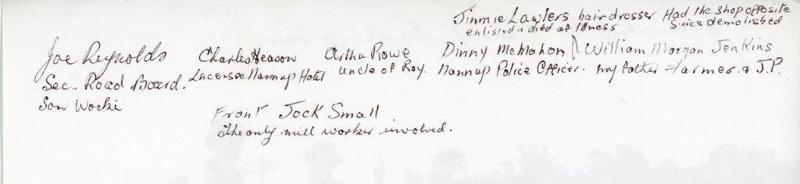 Jimmie Lawlers hairdresser Had the shop opposite
enlisted & died of illness since demolished
Joe Reynolds Charles Heason Artha Rowe Dinny McMahon William Morgan Jenkins
Sec. Road Board. Licensee Nannup Hotel Uncle of Roy. Nannup Police Officer. my father Farmer. & J.P.
Son Wocki
Front Jock Small.
The only mill worker involved.